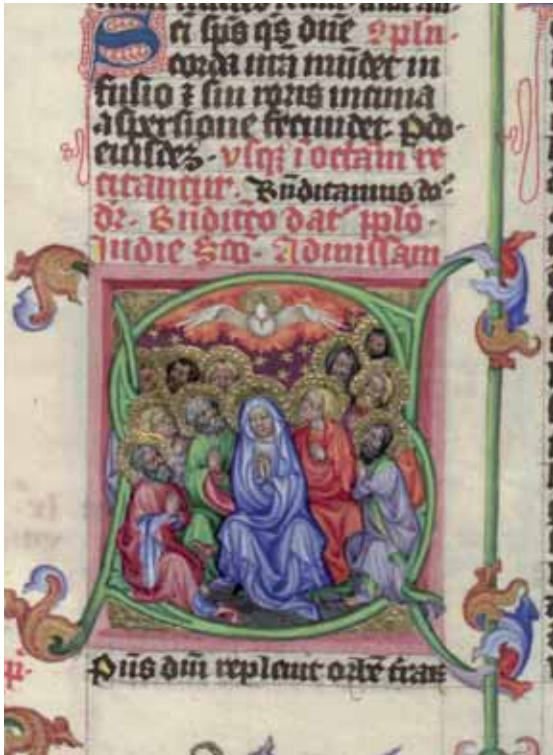 Sci sp̄s q̄s dn̄e
corda nr̄a mūdet in
fusio ⁊ sui roris intima
aspersione fecundet. P do-
eiusdez. Usqz i octam re
citantur. Bn̄dicamus do-
dr̄. Bn̄dictō dat̄ pplō.
In die Sctō. Ad missam
S pūs dnī repleuit orbē trar